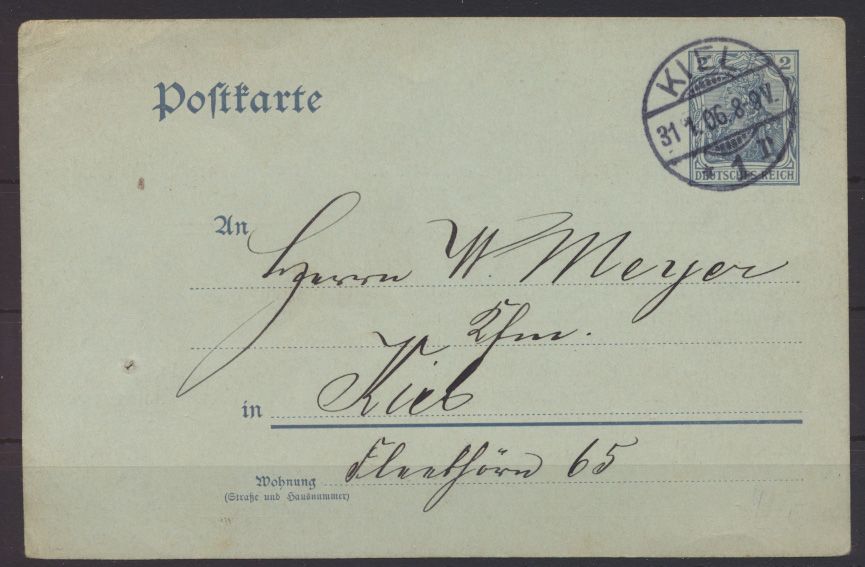 Postkarte
2 2
DEUTSCHES REICH
KIEL
31.1.06.8-9V.
* 1 n
An Herrn W. Meyer
Kfm.
in Kiel
Fleethörn 65
Wohnung
(Straße und Hausnummer)